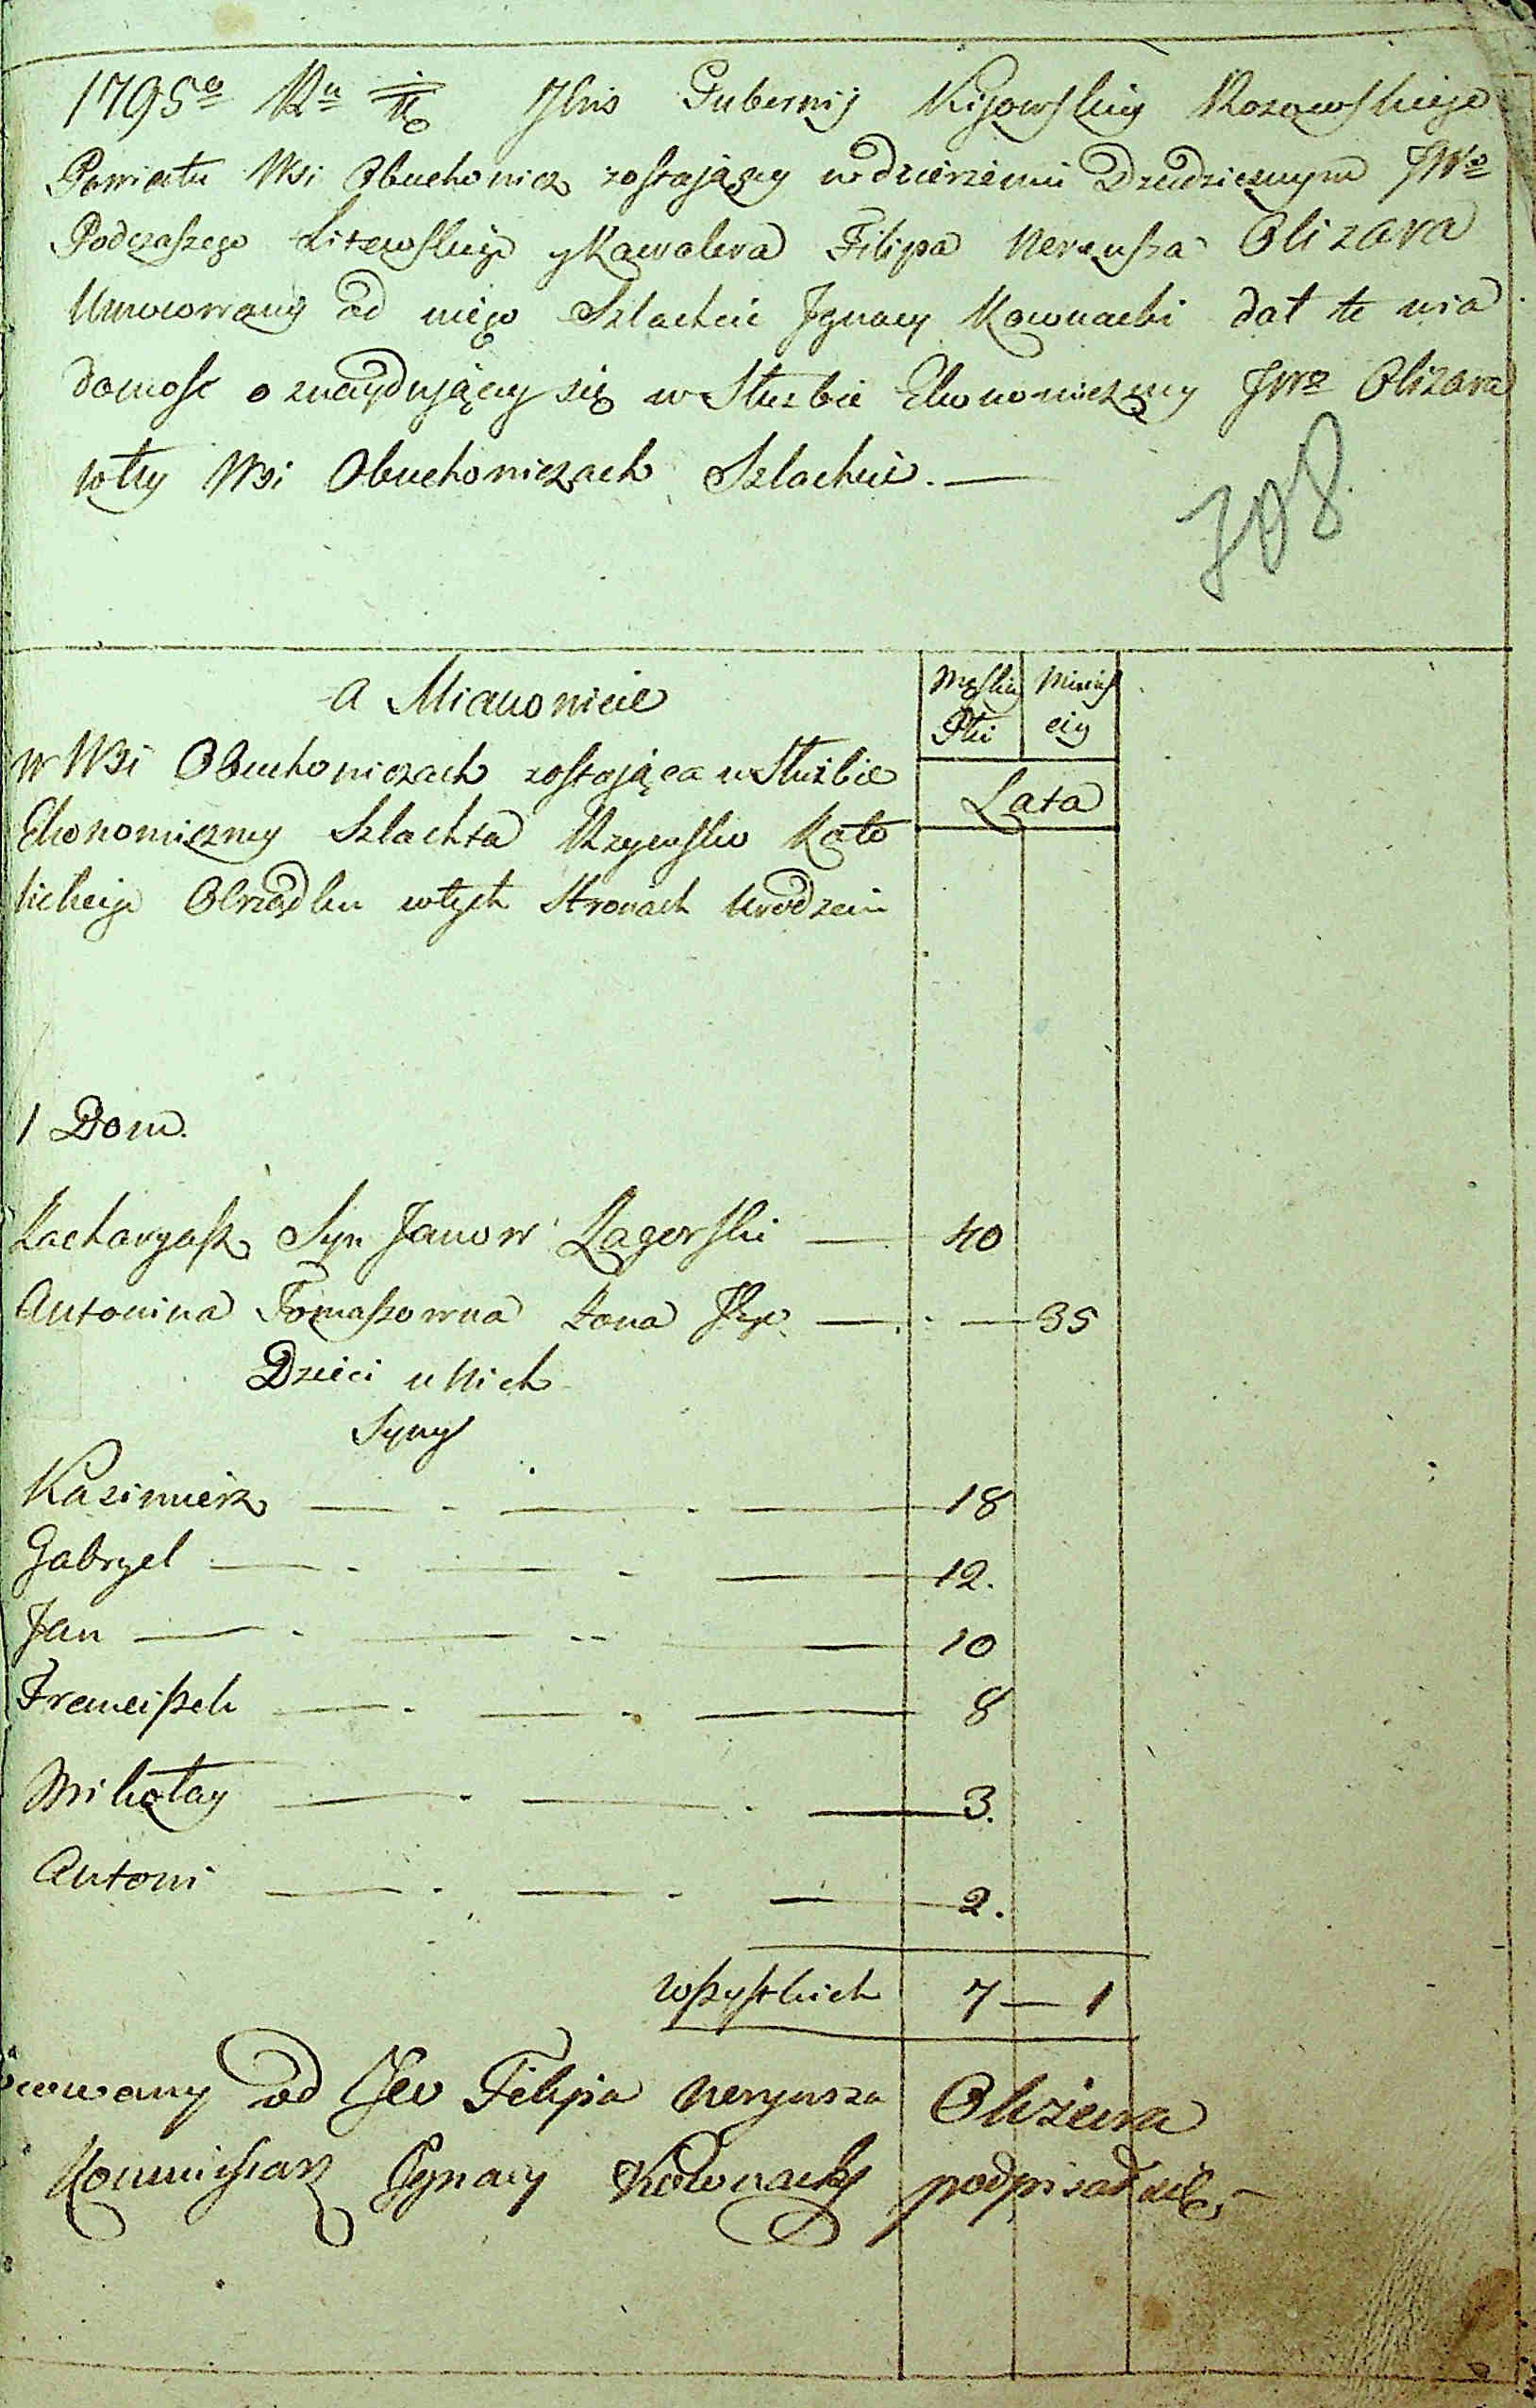 1795o Ru Gubernij Kijowskiey Rozowskiego
Powiatu Wsi Obuchowicz zostającey w dzierżeniu Dziedzicznym JWo
Podczaszego Litewskiego y Kawalera Filipa Nereusza Olizara
Umocowany od niego Szlachcic Jgnacy Kownacki dał te wia
domość o znaydujący się w Służbie Ekonomiczney JWo Olizara
wtey Wsi Obuchowiczach Szlachcie. —
708
a Mianowicie
Męskiey Płci
Lata
w Wsi Obuchowiczach zostająca w Służbie
Ekonomiczney Szlachta Rzymsko Kato
lickiego Obrządku wtych Stronach Urodzeni
1 Dom.
Zacharyasz Syn Janow Zagorski — 40
Antonina Tomaszowna Zona Jego — 35
Dzieci u Nich
Syny
Kazimierz — 18
Gabryel — 12.
Jan — 10
Franciszek — 8
Mikołay — 3.
Antoni — 2.
wszystkich 7 — 1
cowany od Filipa Neryusza Olizara
Kommissarz Jgnacy Kownacky podpisał się